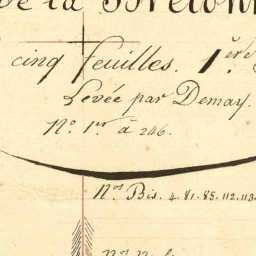 de la Bretonn
cinq feuilles. 1.ère
Levée par Demay.
N.o 1.er à 246.
N.os Bis. 4. 81. 85. 112. 113